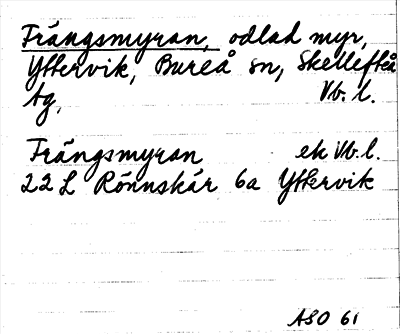 Trängsmyran, odlad myr,
Yttervik, Bureå sn, Skellefteå
tg, Vb. l.
Trängsmyran ek Vb. l.
22 L Rönnskär 6a Yttervik
ASO 61